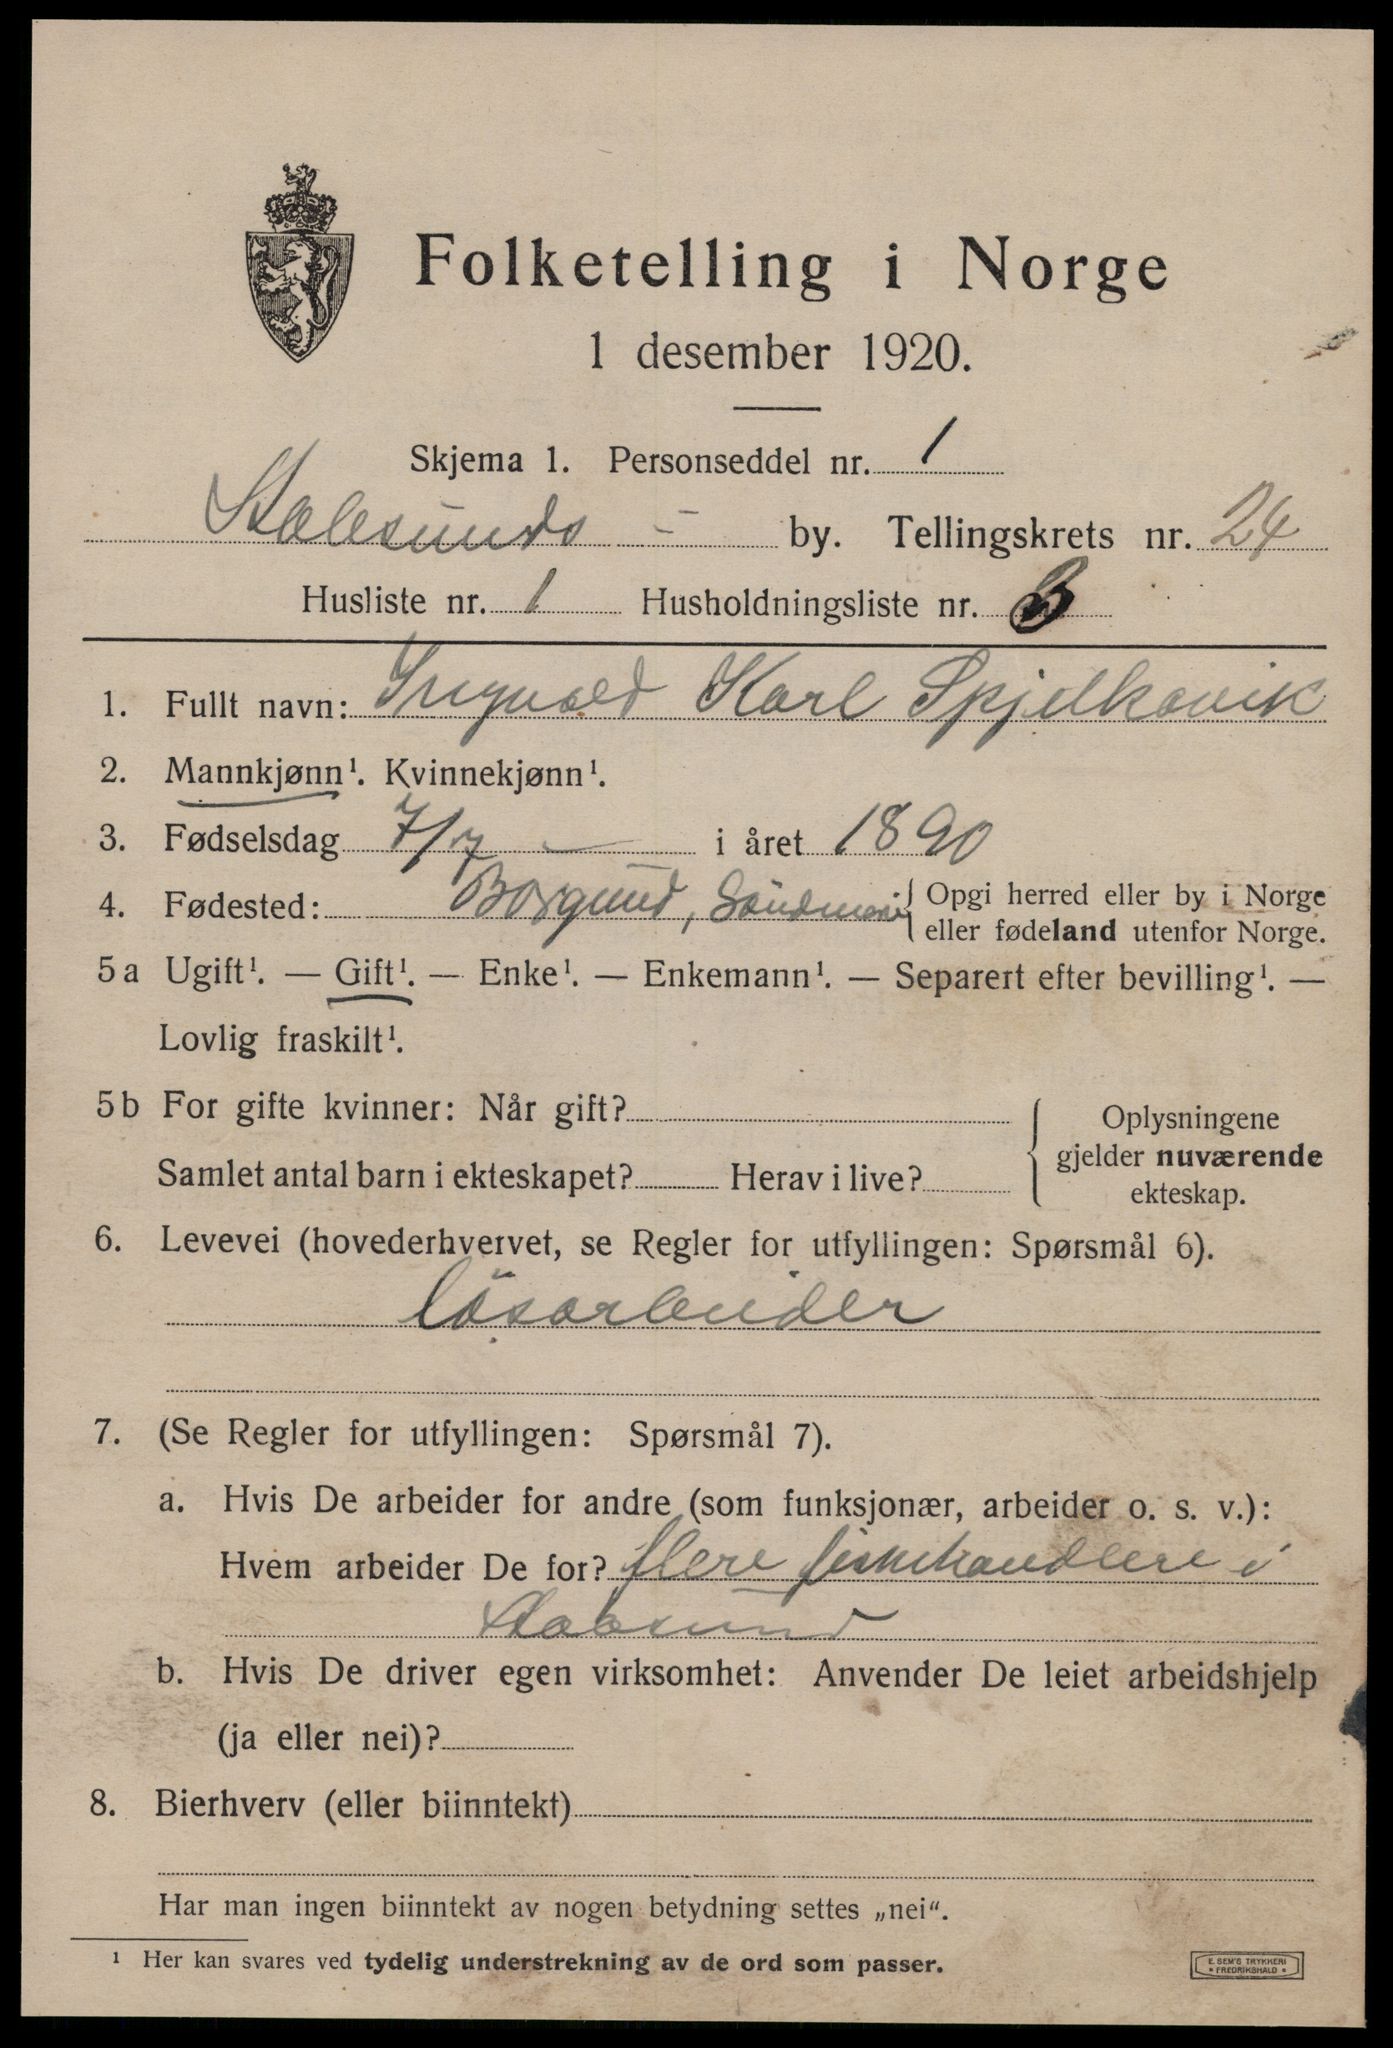 Folketelling i Norge
1 desember 1920.
Skjema 1. Personseddel nr. 1
Aalesunds - by. Tellingskrets nr. 24
Husliste nr. 1 Husholdningsliste nr. 3
1. Fullt navn: Ingvald Karl Spjelkavik
2. Mannkjønn¹. Kvinnekjønn¹.
3. Fødselsdag 7/7 — i året 1890
4. Fødested: Borgund, Söndmøre { Opgi herred eller by i Norge
eller fødeland utenfor Norge.
5a Ugift¹. — Gift¹. — Enke¹. — Enkemann¹. — Separert efter bevilling¹. —
Lovlig fraskilt¹.
5b For gifte kvinner: Når gift?
Samlet antal barn i ekteskapet? Herav i live?
Oplysningene
gjelder nuværende
ekteskap.
6. Levevei (hovederhvervet, se Regler for utfyllingen: Spørsmål 6).
løsarbeider
7. (Se Regler for utfyllingen: Spørsmål 7).
a. Hvis De arbeider for andre (som funksjonær, arbeider o. s. v.):
Hvem arbeider De for? flere fiskehandlere i
Aalesund
b. Hvis De driver egen virksomhet: Anvender De leiet arbeidshjelp
(ja eller nei)?
8. Bierhverv (eller biinntekt)
Har man ingen biinntekt av nogen betydning settes „nei“.
¹ Her kan svares ved tydelig understrekning av de ord som passer.
E. SEM'S TRYKKERI
• FREDRIKSHALD •